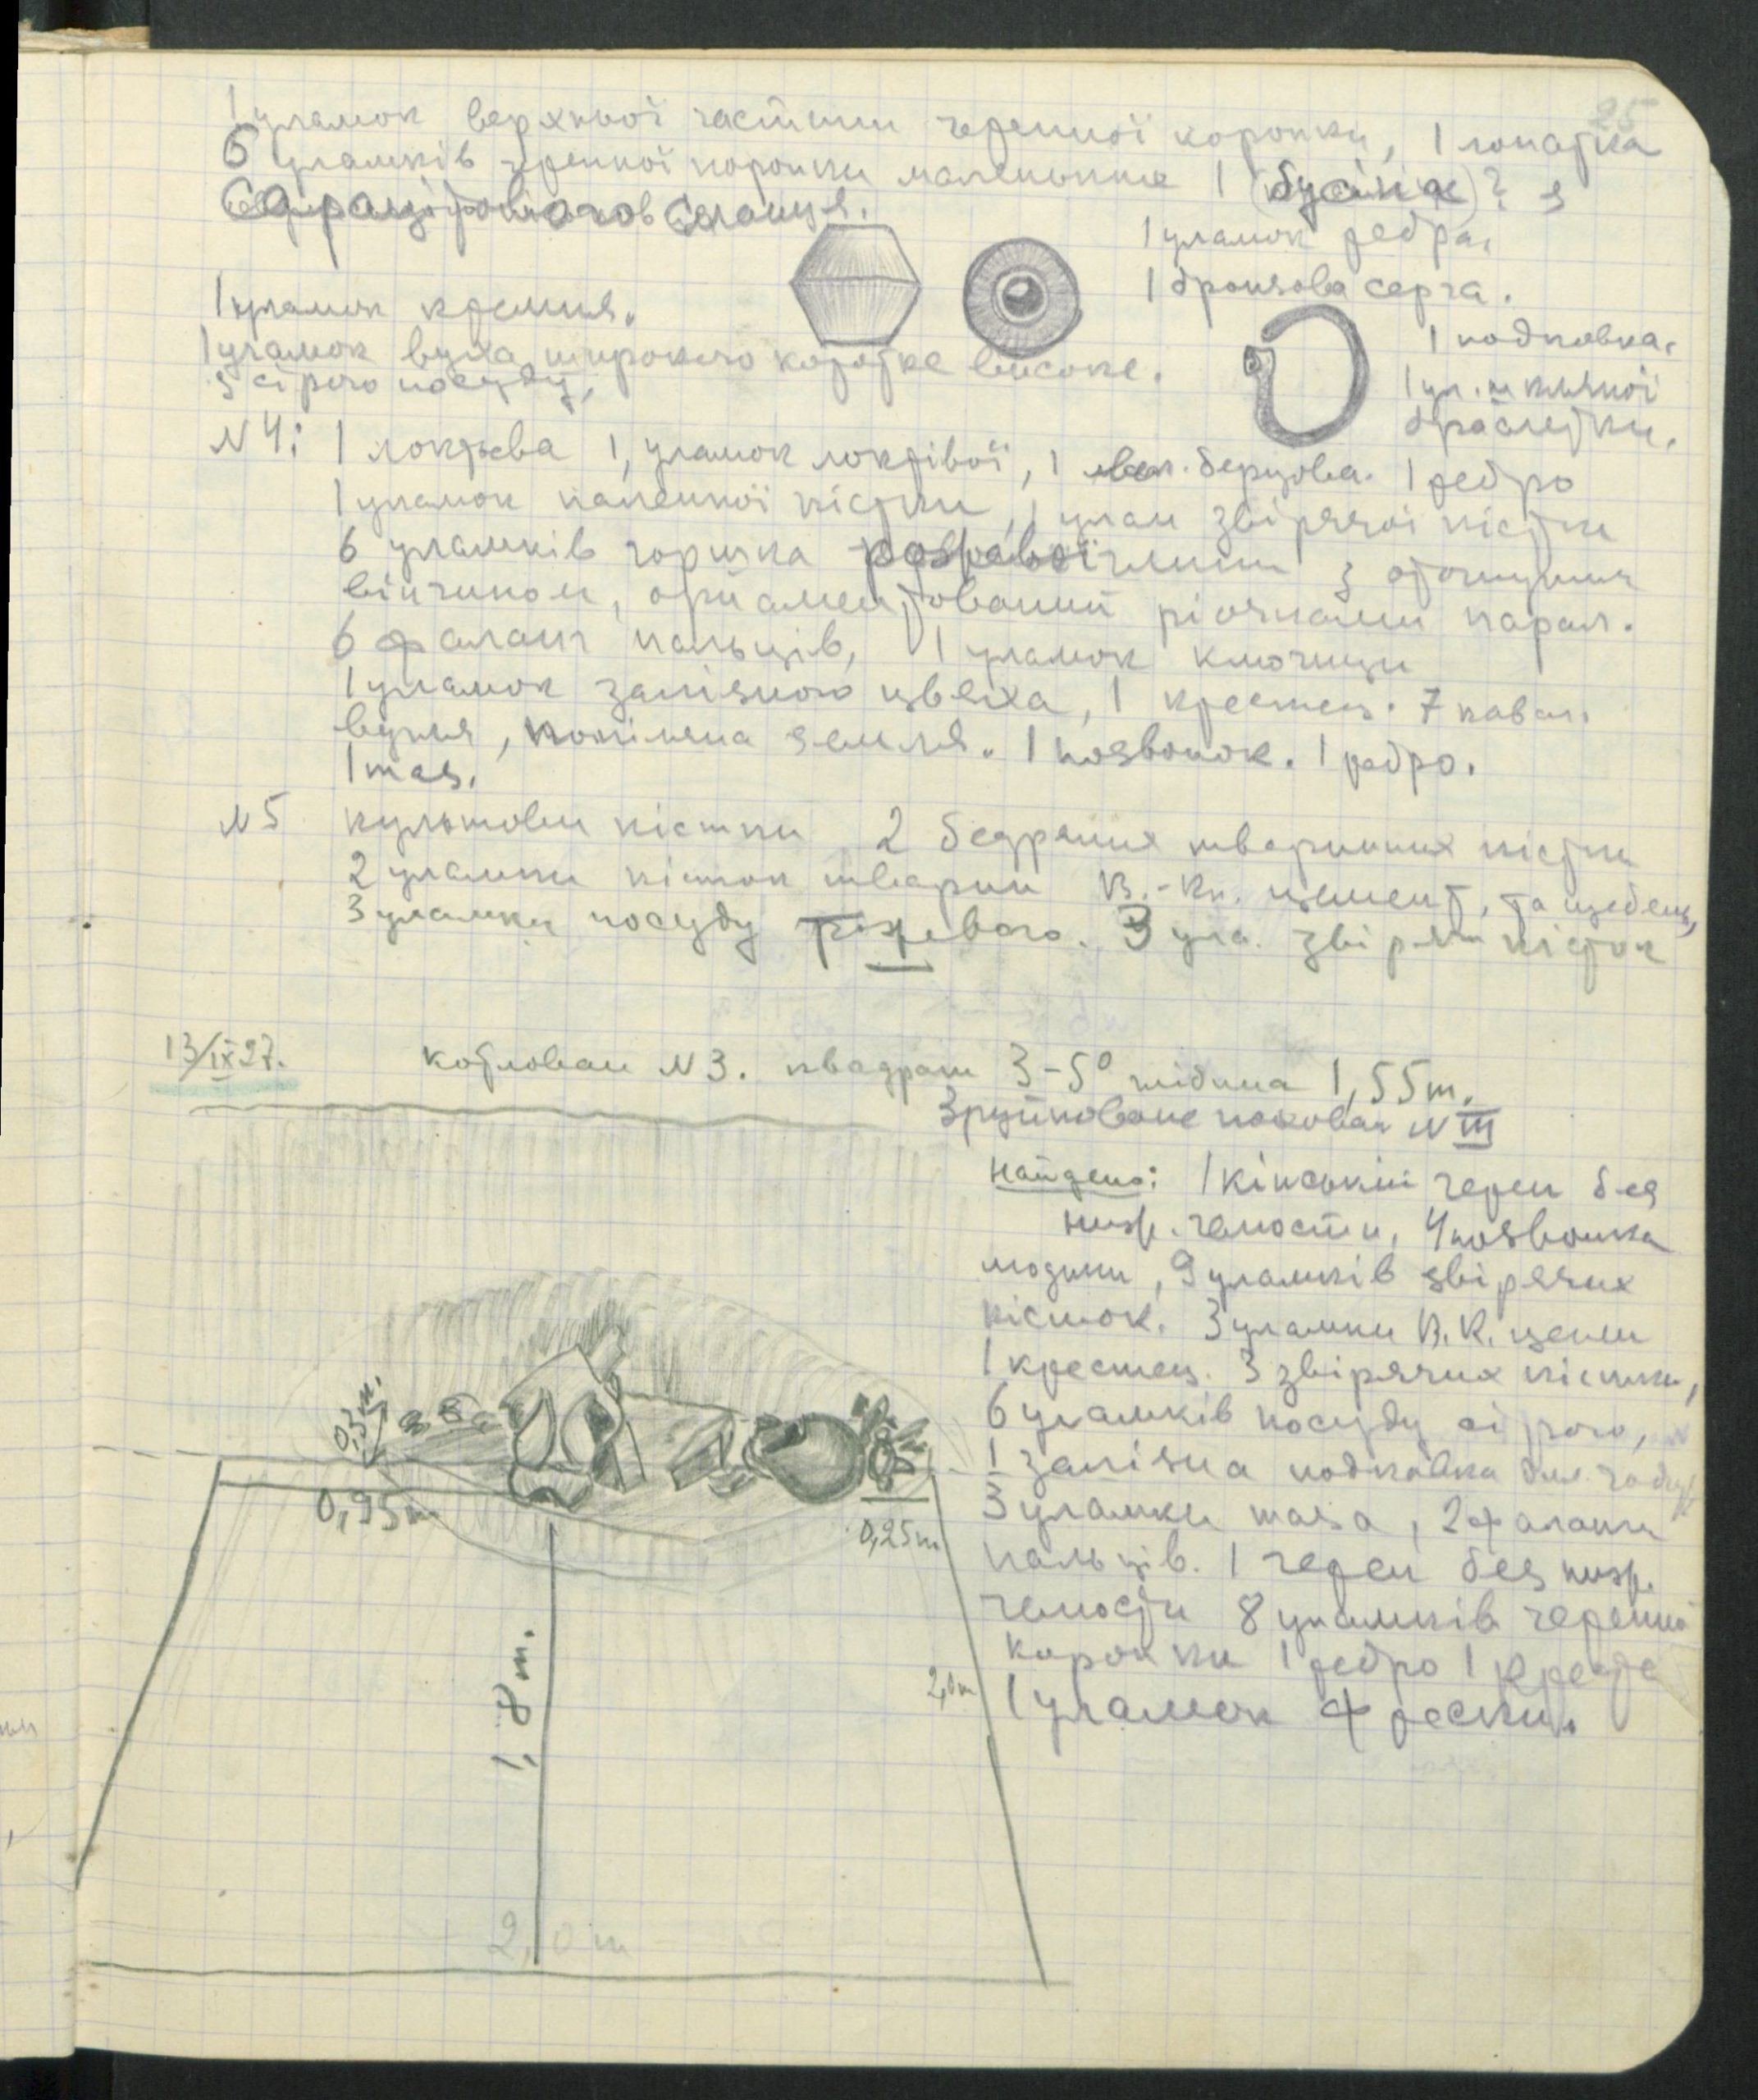 25
1 уламок верхньої частини черепної коропки, 1 лопатка
6 уламків черепної коропки маленьких 1 (бусіна)? з
1 уламок ребра,
1 бронзова серга.
1 уламок кремня.
1 подковка,
1 уламок вуха широкого коротке високе.
з сірого посуду,
1 ул. шкляної
браслетки.
N 4: 1 локтьва 1, уламок локтівої, 1 вел. берцова. 1 ребро
1 уламок паленної кістки, 1 улам звірячої кістки
6 уламків горшка глини з отогнутим
вінчиком, орнаментований рісочками парал.
6 фаланг пальців, 1 уламок ключици
1 уламок залізного цвяха, 1 крестец. 7 кавал.
вугля, земля. 1 позвонок. 1 ребро.
1 таз.
N 5 культови кістки 2 бедряних тваринних кістки
2 уламки кісток тварин В.-Кн. цемент, та щебень,
3 уламки посуду 3 ула. звіряч кісток
13/IX 27. Котлован N 3. квадрат 3-5° глібина 1,55 m.
Зруйноване похован N III
Найдено: 1 кінський череп без
нижн. челюсти, 4 позвонка
людини, 9 уламків звірячих
кісток. 3 уламки В.К. цегли
1 крестец. 3 звірячих кістки,
6 уламків посуду сірого,
1 залізна подковка для
3 уламки таза, 2 фаланги
пальців. 1 череп без нижн.
челюсти 8 уламків черепної
коропки 1 ребро 1
1 уламок фрески.
0,3 m.
0,95 m
0,25 m
1,8 m.
2,0 m
2,0 m